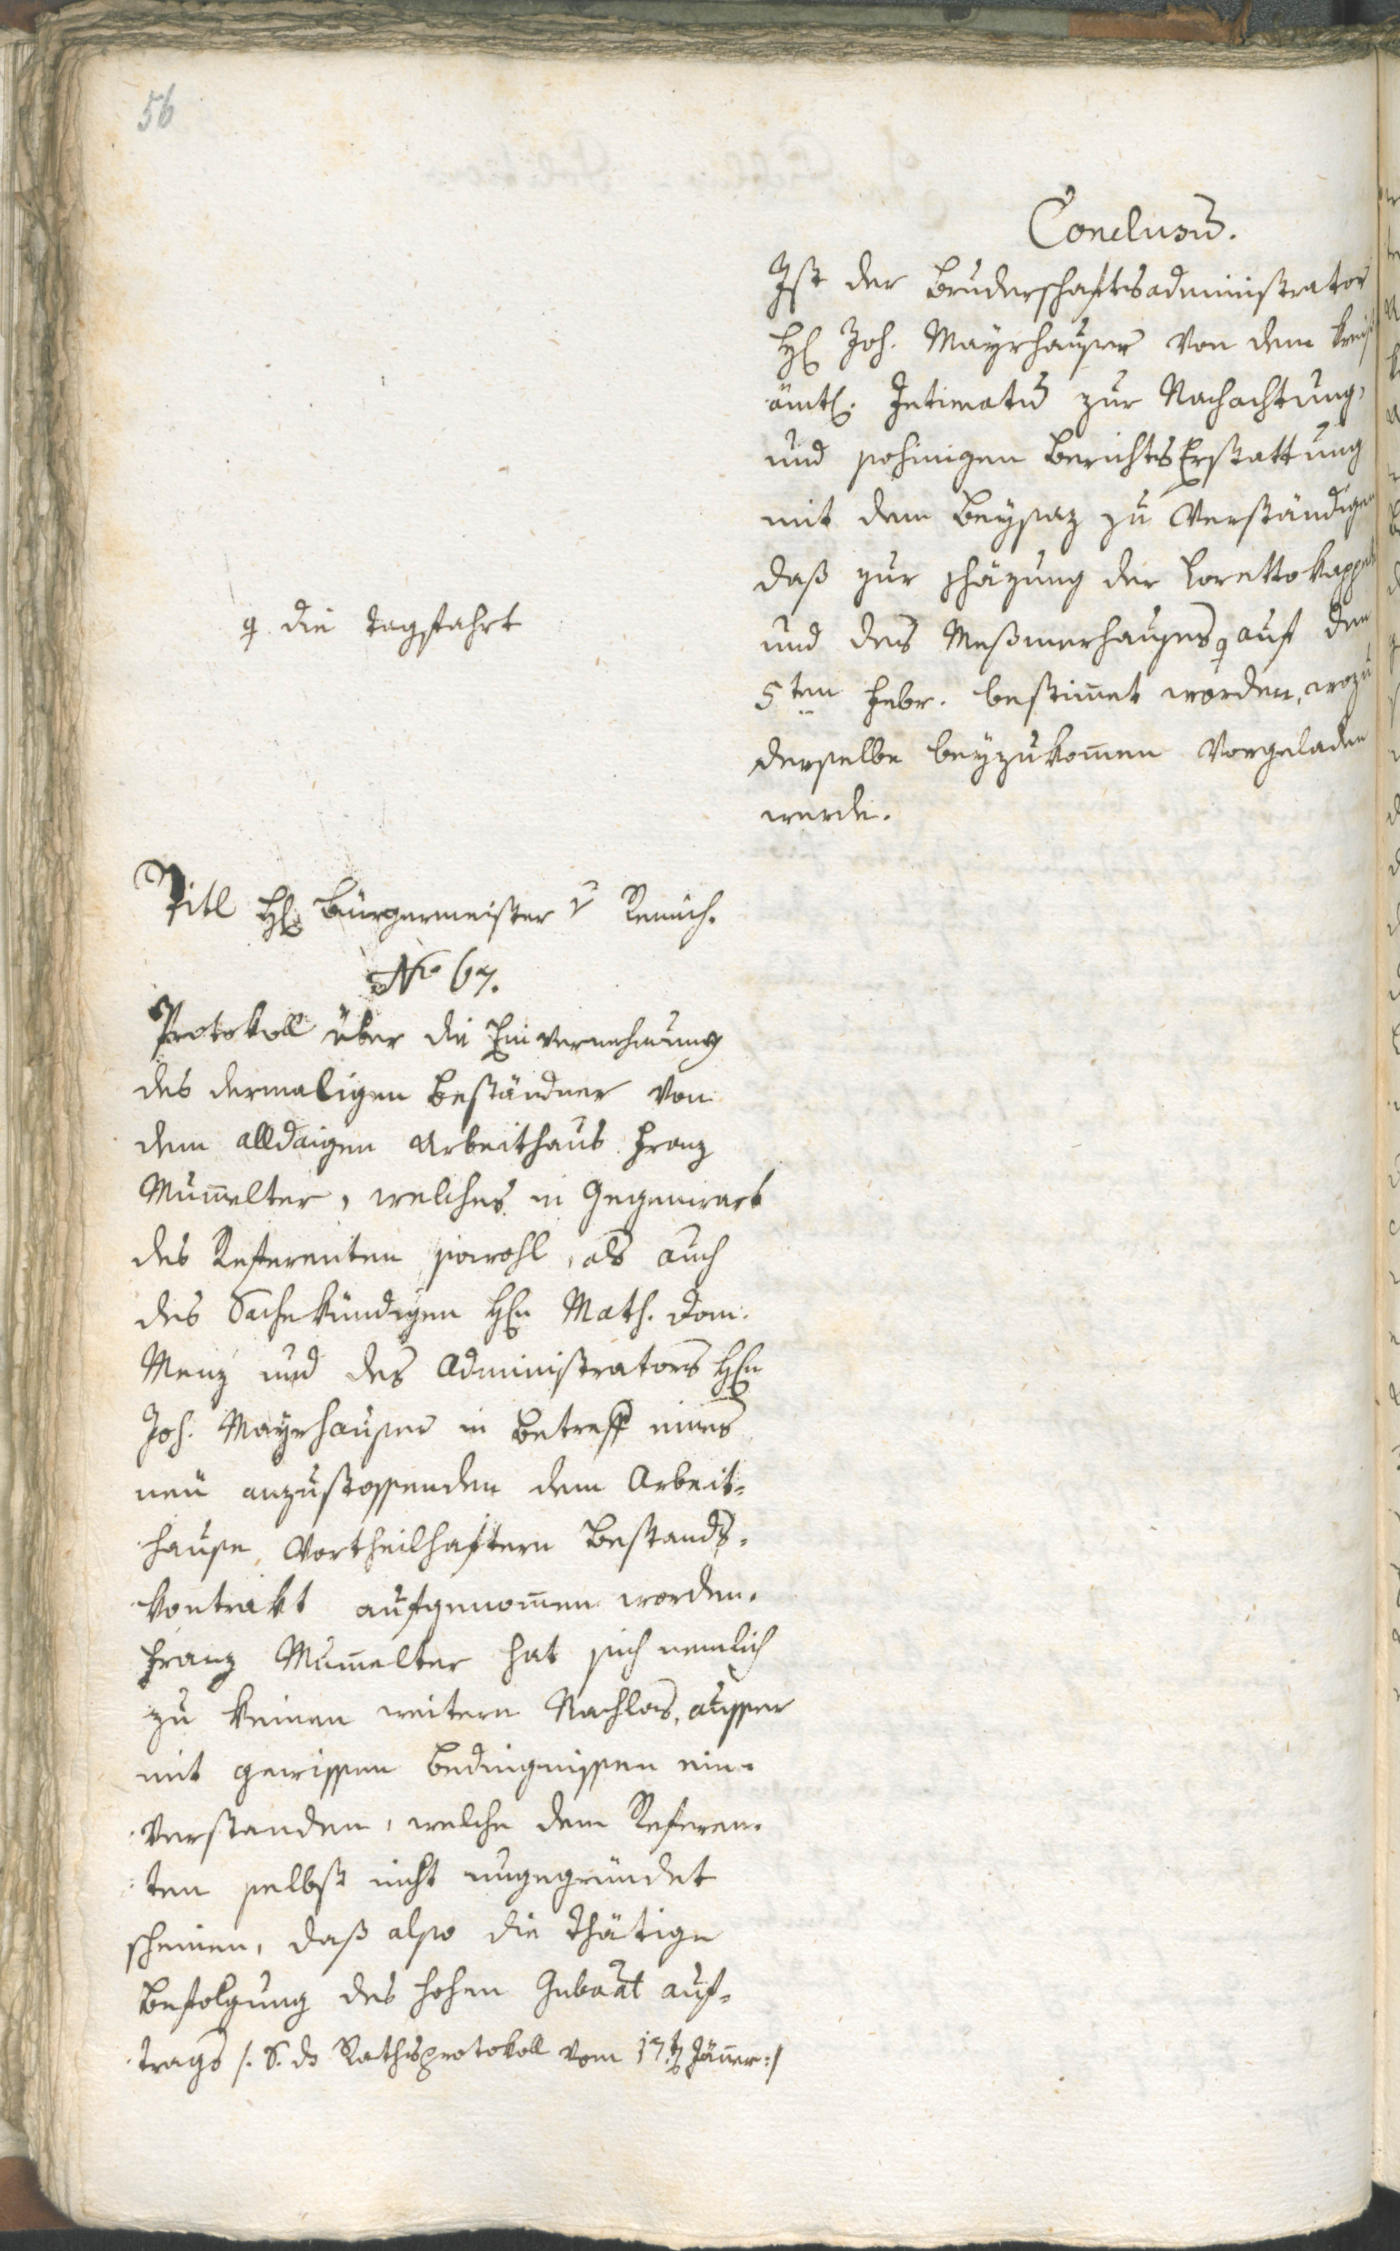 56
Conclusum.
Ist der Bruderschaftsadministrator
H. Joh. Mayrhauser von dem kreis
ämtl. Intimatum zur Nachachtung,
und sohinigen Berichts Erstattung
mit dem Beysaz zu verständigen
daß zur Schäzung der Lorettokappelle
und des Meßmerhauses auf den
5ten Febr. bestimmt worden, wozu
derselbe beyzukommen vorgeladen
werde.
die Tagsfahrt
Titl H. Bürgermeister v Remich.
Nro 67.
Protokoll über die Einvernehmung
des dermaligen Beständner von
dem alldaigen Arbeithaus Franz
Mumelter, welches in Gegenwart
des Referenten sowohl, als auch
des Sachekündigen Hrn Math. Dom.
Menz und des Administrators Hrn
Joh. Mayrhauser in Betreff eines
neü anzustossenden dem Arbeit-
hause vortheilhaftern Bestands-
kontrakt aufgenommen worden.
Franz Mumelter hat sich nemlich
zu keinen weitern Nachlas, ausser
mit gewissen Bedingnissen ein-
verstanden, welche dem Referen-
ten selbst nicht ungegründet
scheinen, daß also die thätige
Befolgung des hohen Gubernat auf-
trags /: S. ds Rathsprotokoll vom 17. Jänner :/